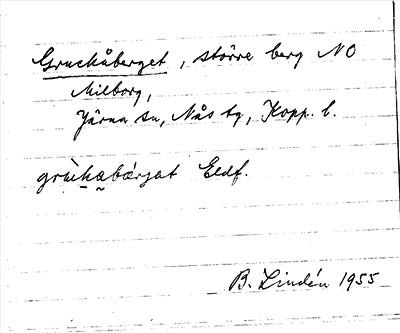 Gruckåberget, större berg NO
Milborg,
Järna sn, Nås tg, Kopp. l.
grùkabærjat Eldf.
B. Lindén 1955